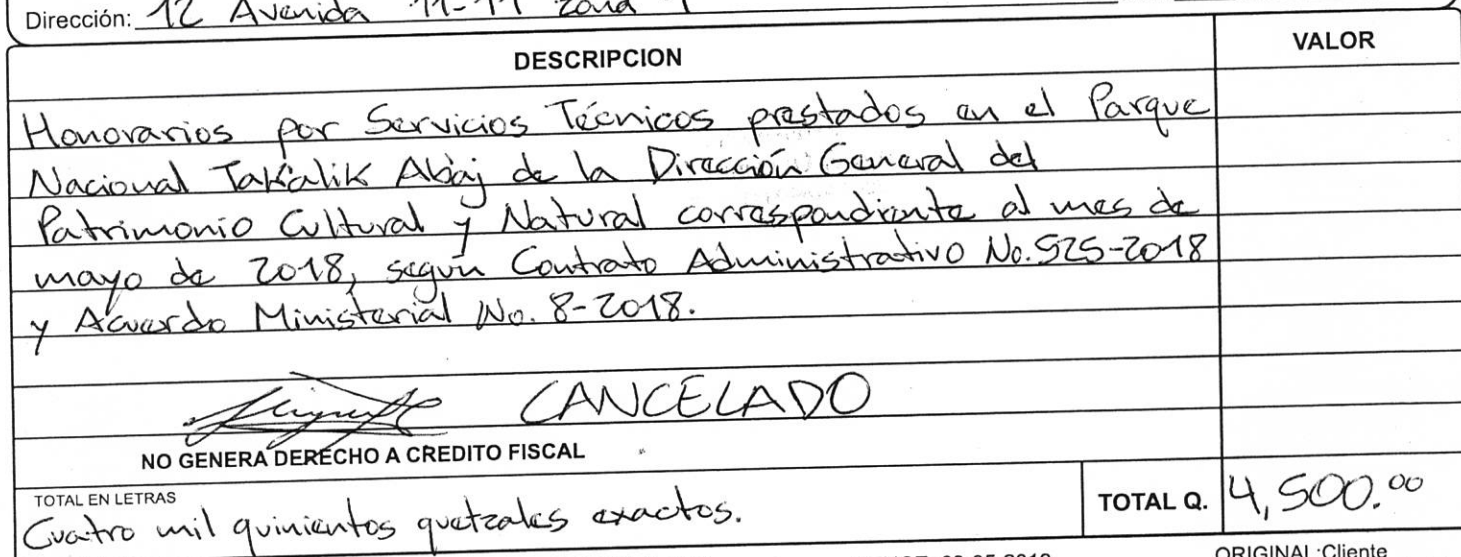 Dirección: 12 Avenida 11-11 zona 1
DESCRIPCION
VALOR
Honorarios por Servicios Técnicos prestados en el Parque
Nacional Tak'alik Ab'aj de la Dirección General del
Patrimonio Cultural y Natural correspondiente al mes de
mayo de 2018, según Contrato Administrativo No. 525-2018
y Acuerdo Ministerial No. 8-2018.
CANCELADO
NO GENERA DERECHO A CREDITO FISCAL
TOTAL EN LETRAS
Cuatro mil quinientos quetzales exactos.
TOTAL Q. 4,500.00
ORIGINAL:Cliente